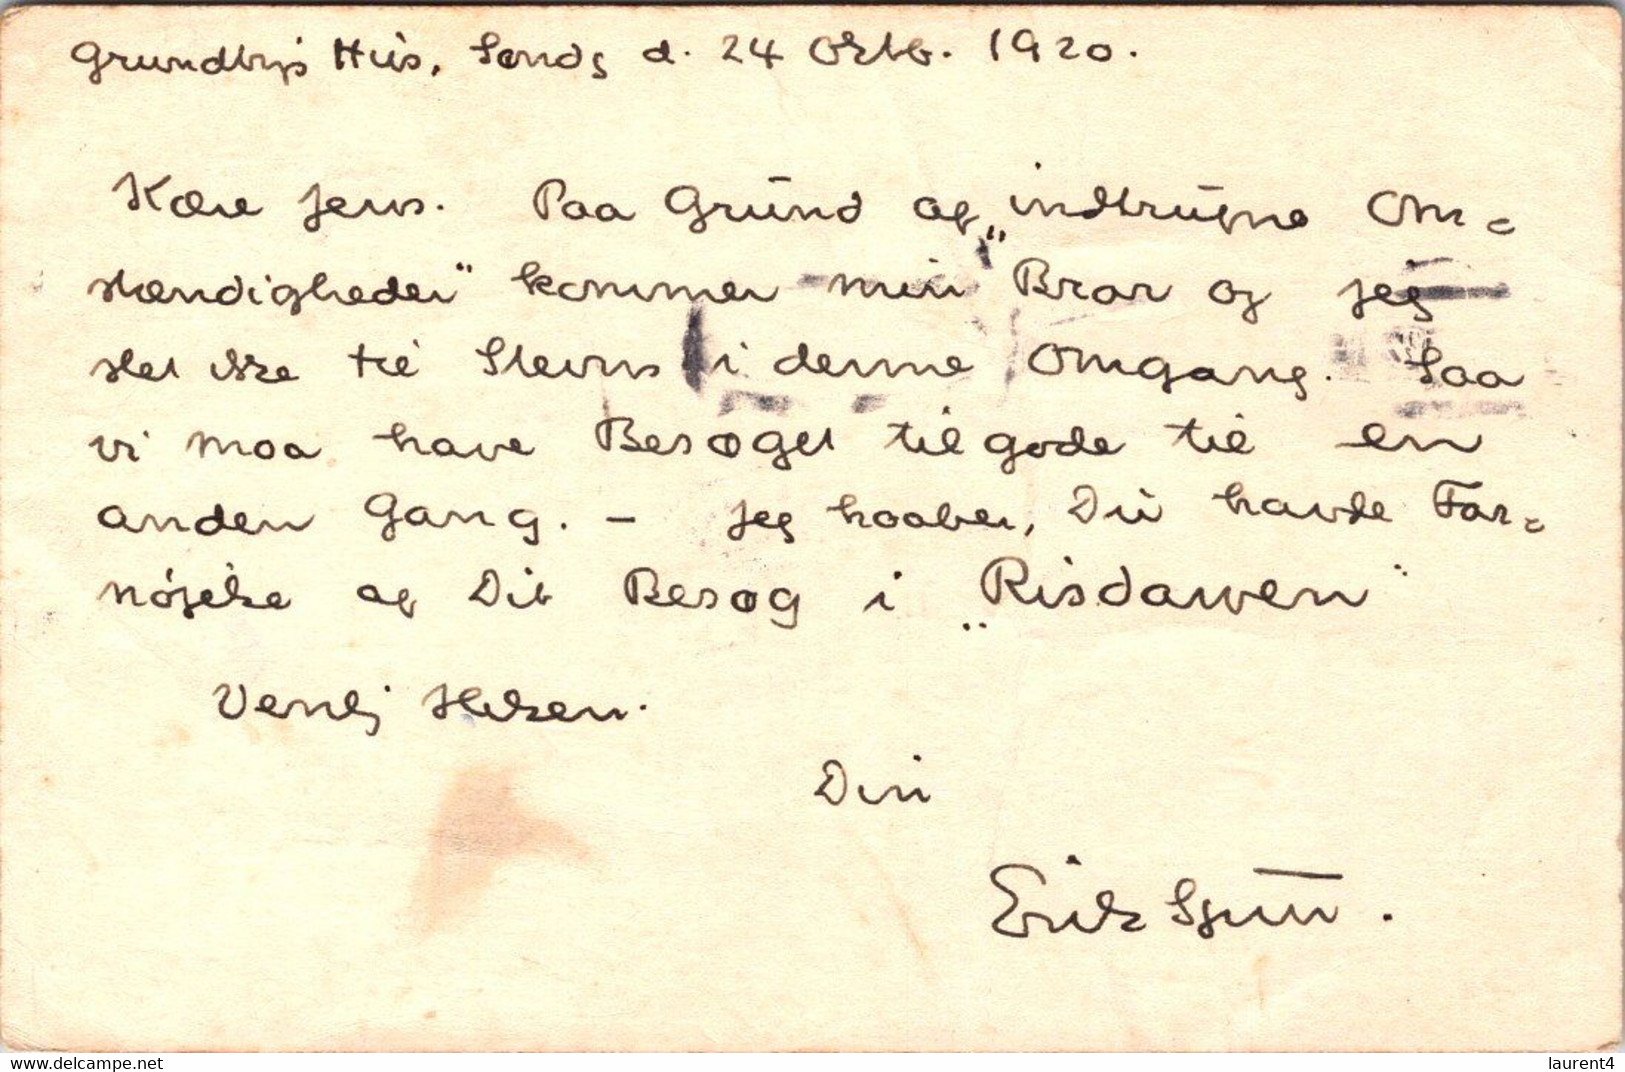 Grundtvigs Hus, Lønds d. 24 Oktb. 1920.
Kære Jens. Paa Grund af „indtrufne Om=
stændigheder" kommer min Bror og jeg
slet ikke til Stevns i denne Omgang. Saa
vi maa have Besøget tilgode til en
anden Gang. – Jeg haaber, Du havde For=
nøjelse af Dit Besøg i „Risdawen"
Venlig Hilsen.
Din
Erik
delcampe.net
laurent4